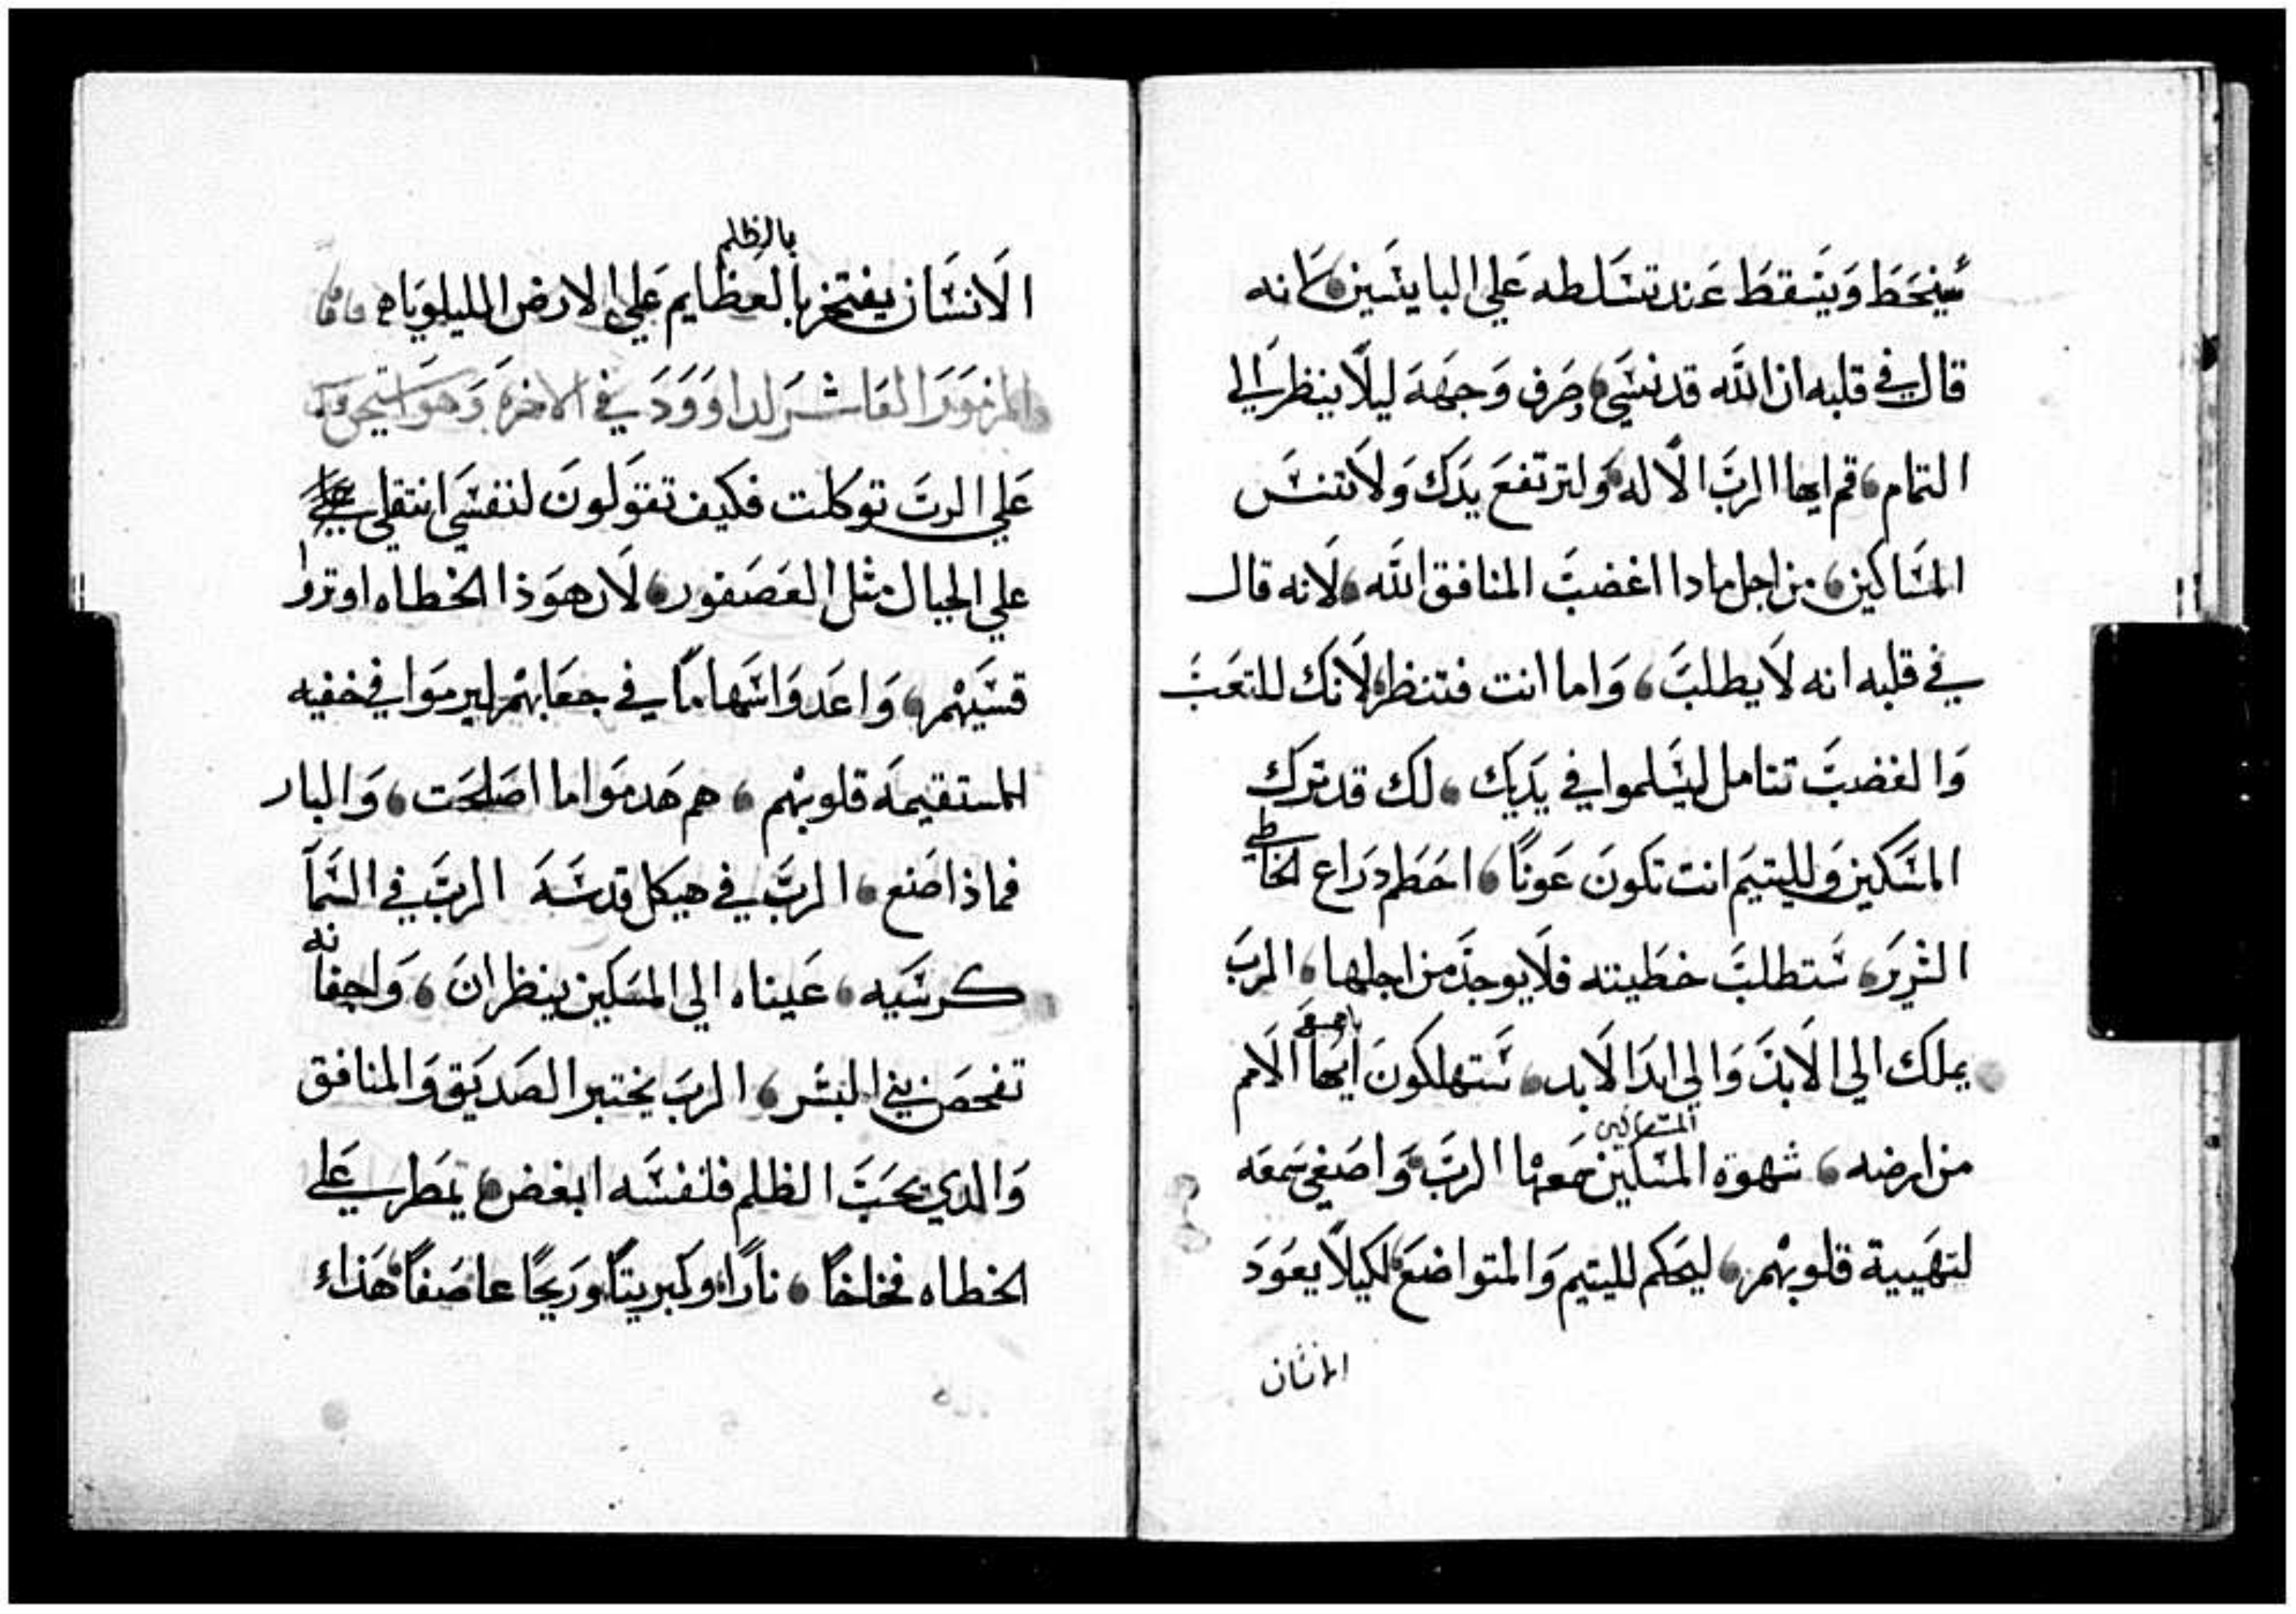 سينحط ويسقط عند تسلطه علي البايسين كانه
قال في قلبه ان الله قد نسي وصرف وجهه ليلا ينظر الي
التمام قم ايها الرب الاله ولترتفع يدك ولا تنس
المساكين من اجل مادا اغضب المنافق الله لانه قال
في قلبه انه لا يطلب واما انت فتنظر لانك للتعب
والغضب تتامل ليسلموا في يديك لك قد ترك
المسكين ولليتيم انت تكون عونا احطم دراع الخاطي
الشرير ستطلب خطيته فلا يوجد من اجلها الرب
يملك الي الابد والي ابد الابد ستهلكون ايها الامم
من ارضه شهوة المسكين سمعها الرب واصغي سمعه
لتهيية قلوبهم ليحكم لليتيم والمتواضع لكيلا يعود
الانسان
بالظلم
الانسان يفتخر بالعظايم علي الارض الليلوياه
المزمور العاشر لداوود في الاخرة وهو
علي الرب توكلت فكيف تقولون لنفسي انتقلي
علي الجبال مثل العصفور لان هوذا الخطاه اوتروا
قسيهم واعدوا سهاما في جعابهم ليرموا في خفيه
المستقيمه قلوبهم هم هدموا ما اصلحت والبار
فماذا صنع الرب في هيكل قدسه الرب في السما
كرسيه عيناه الي المسكين ينظران واجفانه
تفحص بني البشر الرب يختبر الصديق والمنافق
والدي يحب الظلم فلنفسه ابغض يمطر علي
الخطاه فخاخا نارا وكبريتا وريحا عاصفا هذاء